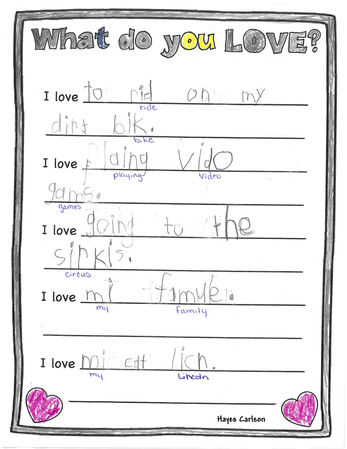 What do you LOVE?
I love to rid on my
ride
dirt bik.
bike
I love plaing vido
playing video
gams.
games
I love going to the
sirkis.
circus
I love mi famyle.
my family
I love mi catt licn.
my Lincoln
Hayes Carlson